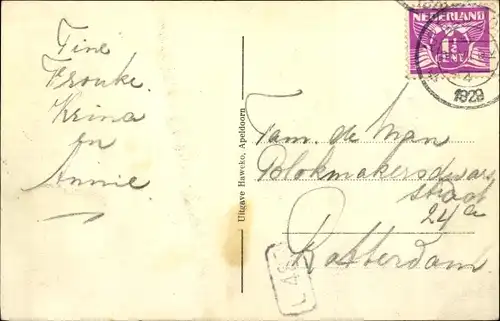 Tine
Frouke.
Krina
en
Annie.
Uitgave Haweko, Apeldoorn
NEDERLAND
1½
CENT
1929
Fam. de Man
Blokmakersdwars
straat
24a
Rotterdam
L 48